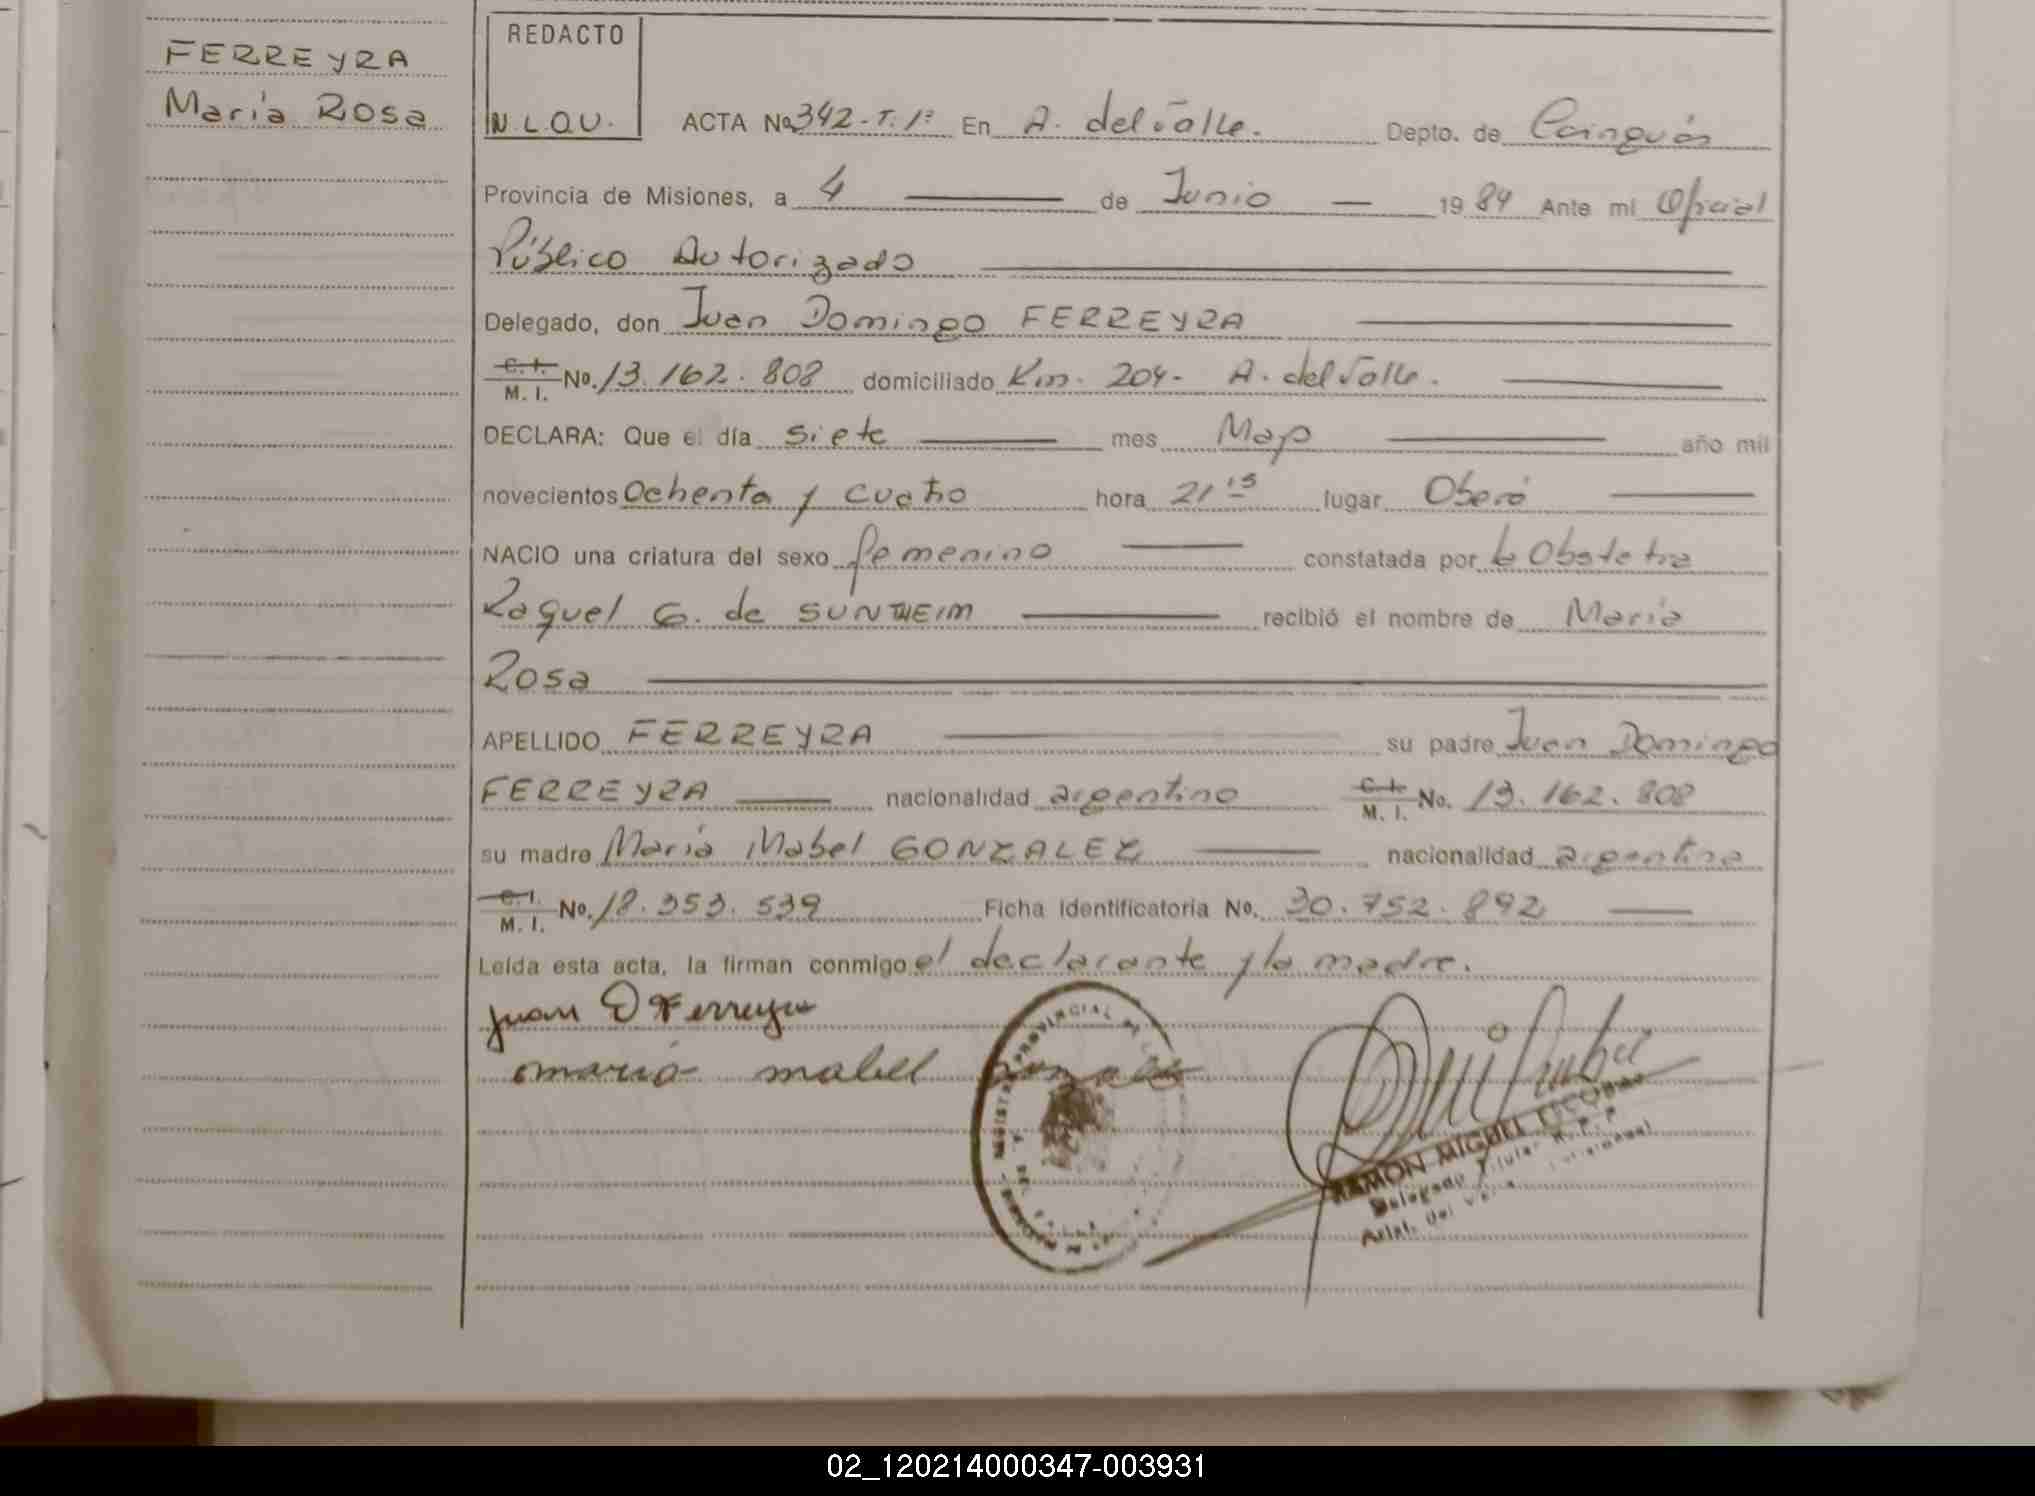 FERREYRA
María Rosa
REDACTO
N.L.Q.U.
ACTA No. 342-T. 1º En A. del Valle. Depto. de Cainguás
Provincia de Misiones, a 4 de Junio 1984 Ante mí Oficial
Público Autorizado
Delegado, don Juan Domingo FERREYRA
C. I. M. I. No. 13.162.808 domiciliado Km. 204- A. del Valle.
DECLARA: Que el día siete mes Mayo año mil
novecientos Ochenta y cuatro hora 21 15 lugar Oberá
NACIO una criatura del sexo femenino constatada por la Obstetra
Raquel G. de SUNTHEIM recibió el nombre de María
Rosa
APELLIDO FERREYRA su padre Juan Domingo
FERREYRA nacionalidad argentino C. I. M. I. No. 13.162.808
su madre María Mabel GONZALEZ nacionalidad argentina
C. I. M. I. No. 18.353.539 Ficha Identificatoria No. 30.752.892
Leída esta acta, la firman conmigo el declarante y la madre.
Juan D Ferreyra
maria mabel gonzalez
PROVINCIAL DE
RAMON MIGUEL ESCOBAR
Delegado Titular R. P. P.
Arist. Del Valle
02_120214000347-003931